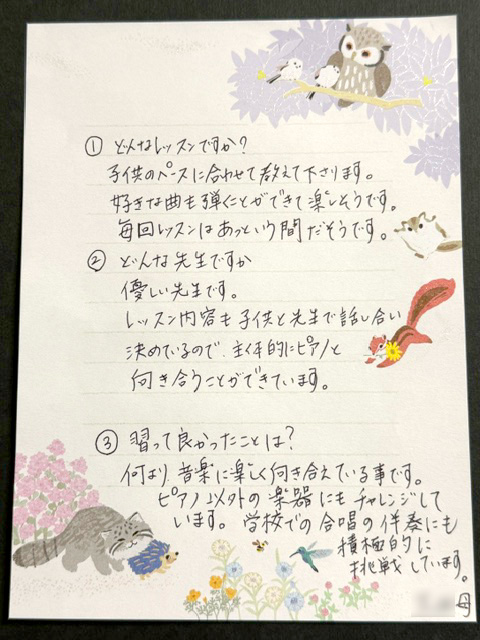 ① どんなレッスンですか?
子供のペースに合わせて教えて下さります。
好きな曲も弾くことができて楽しそうです。
毎回レッスンはあっという間だそうです。
② どんな先生ですか
優しい先生です。
レッスン内容も子供と先生で話し合い
決めているので、主体的にピアノと
向き合うことができています。
③ 習って良かったことは?
何より音楽に楽しく向き合えている事です。
ピアノ以外の楽器にもチャレンジして
います。学校での合唱の伴奏にも
積極的に
挑戦しています。
母